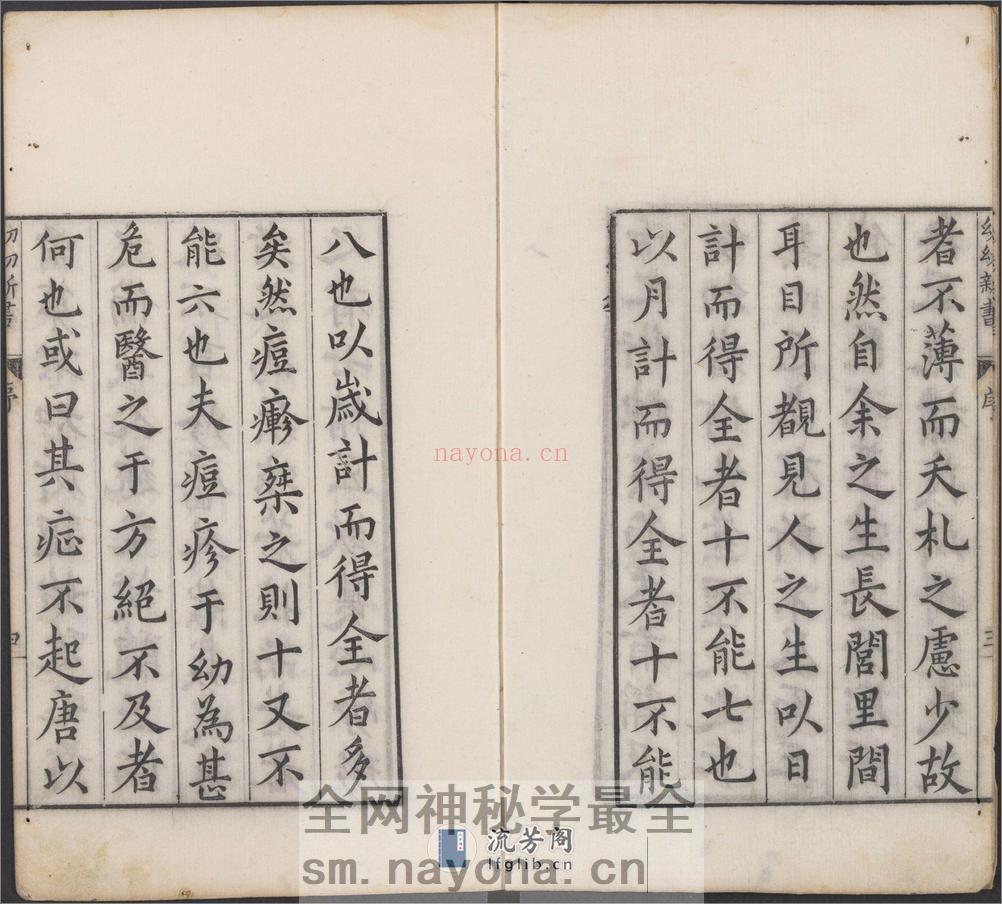 幼幼新書
序
三
者不薄而夭札之慮少故
也然自余之生長閭里間
耳目所覩見人之生以日
計而得全者十不能七也
以月計而得全者十不能
八也以歲計而得全者多
矣然痘瘮槩之則十又不
能六也夫痘疹于幼為甚
危而醫之于方絕不及者
何也或曰其症不起唐以
幼幼新書
序
四
nayona.cn
全网神秘学最全
流芳阁
lfglib.cn
sm.nayona.cn